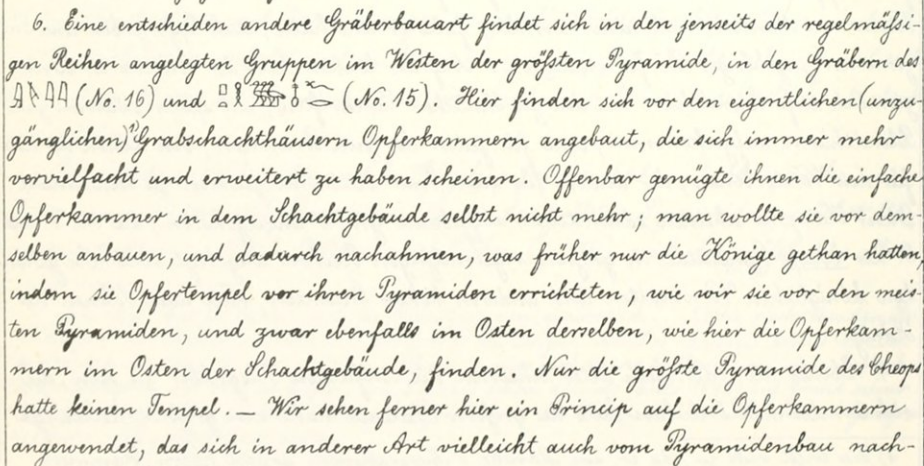 6. Eine entschieden andere Gräberbauart findet sich in den jenseits der regelmäßi-
gen Reihen angelegten Gruppen im Westen der größten Pyramide, in den Gräbern des
(No. 16) und (No. 15). Hier finden sich vor den eigentlichen (unzu-
gänglichen)¹) Grabschachthäusern Opferkammern angebaut, die sich immer mehr
vervielfacht und erweitert zu haben scheinen. Offenbar genügte ihnen die einfache
Opferkammer in dem Schachtgebäude selbst nicht mehr; man wollte sie vor dem-
selben anbauen, und dadurch nachahmen, was früher nur die Könige gethan hatten,
indem sie Opfertempel vor ihren Pyramiden errichteten, wie wir sie vor den meis-
ten Pyramiden, und zwar ebenfalls im Osten derselben, wie hier die Opferkam-
mern im Osten der Schachtgebäude, finden. Nur die größte Pyramide des Cheops
hatte keinen Tempel. — Wir sehen ferner hier ein Princip auf die Opferkammern
angewendet, das sich in anderer Art vielleicht auch vom Pyramidenbau nach-